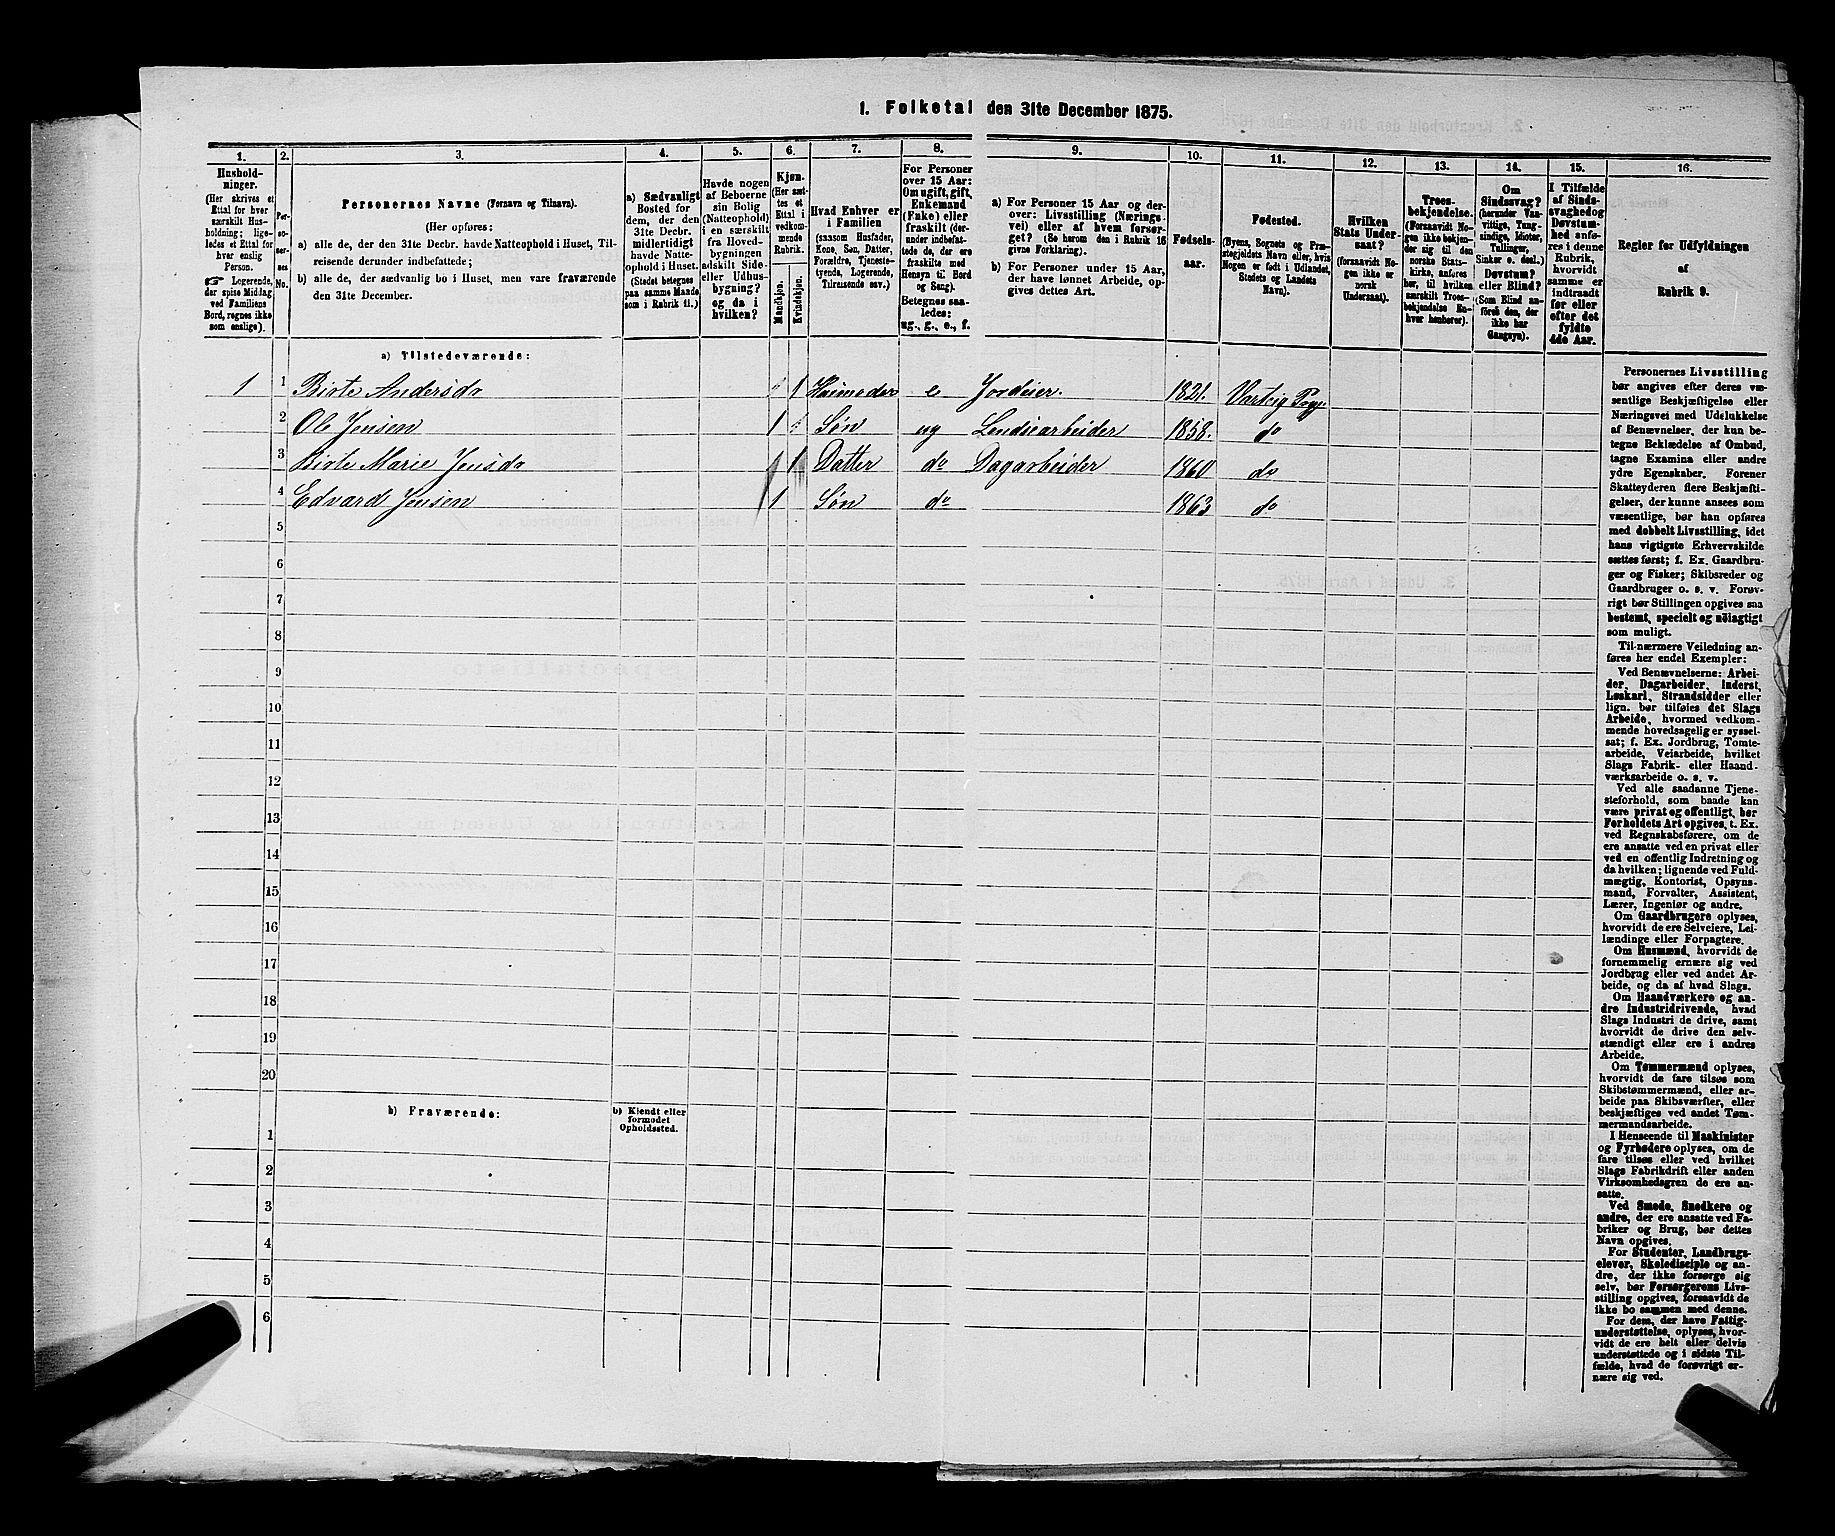 1. Folketal den 31te December 1875.
1.
2.
3.
4.
5.
6.
7.
8.
9.
10.
11.
12.
13.
14.
15.
16.
Hushold-
ninger.
(Her skrives et
Ettal for hver
særskilt Hus-
holdning; lige-
ledes et Ettal for
hver enslig
Person.
☛ Logerende,
der spise Middag
ved Familiens
Bord, regnes ikke
som enslige).
Per-
so-
ner-
nes
No.
Personernes Navne (Fornavn og Tilnavn).
(Her opføres:
a) alle de, der den 31te Decbr. havde Natteophold i Huset, Til-
reisende derunder indbefattede;
b) alle de, der sædvanlig bo i Huset, men vare fraværende
den 31te December.
a) Sædvanligt
Bosted for
dem, der den
31te Decbr.
midlertidigt
havde Natte-
ophold i Huset.
(Stedet betegnes
paa samme Maade
som i Rubrik 11.)
Havde nogen
af Beboerne
sin Bolig
(Natteophold)
i en særskilt
fra Hoved-
bygningen
adskilt Side-
eller Udhus-
bygning?
og da i
hvilken?
Kjøn.
(Her sæt-
tes et
Ettal i
vedkom-
mende
Rubrik.
Mandkjøn.
Kvindekjøn.
Hvad Enhver er
i Familien
(saasom Husfader,
Kone, Søn, Datter,
Forældre, Tjeneste-
tyende, Logerende,
Tilreisende osv.)
For Personer
over 15 Aar:
Om ugift, gift,
Enkemand
(Enke) eller
fraskilt (der-
under indbefat-
tede de, der ere
fraskilte med
Hensyn til Bord
og Seng).
Betegnes saa-
ledes:
ug., g., e., f.
a) For Personer 15 Aar og der-
over: Livsstilling (Nærings-
vei) eller af hvem forsør-
get? (Se herom den i Rubrik 16
givne Forklaring).
b) For Personer under 15 Aar,
der have lønnet Arbeide, op-
gives dettes Art.
Fødsels-
aar.
Fødested.
(Byens, Sognets og Præ-
stegjeldets Navn eller, hvis
Nogen er født i Udlandet,
Stedets og Landets
Navn).
Hvilken
Stats Under-
saat?
(forsaavidt No-
gen ikke er
norsk
Undersaat).
Troes-
bekjendelse.
(Forsaavidt No-
gen ikke bekjen-
der sig til den
norske Stats-
kirke, anføres
her, til hvilken
særskilt Troes-
bekjendelse En-
hver henhører).
Om
Sindssvag?
(herunder Van-
vittige, Tung-
sindige, Idioter,
Tullinger,
Sinker o. desl.)
Døvstum?
eller Blind?
(Som Blind an-
føres den, der
ikke har
Gangsyn).
I Tilfælde
af Sinds-
svaghed og
Døvstum-
hed anfø-
res i denne
Rubrik,
hvorvidt
samme er
indtraadt
før eller
efter det
fyldte
4de Aar.
Regler for Udfyldningen
af
Rubrik 9.
a) Tilstedeværende:
1 1 Birte Andersdr 1 Husmoder e Jordeier. 1821. Varteig Prgj.
2 Ole Jensen 1 Søn ug Lendsearbeider 1858. do
3 Birte Marie Jensdr 1 Datter do Dagarbeider 1860 do
4 Edvard Jensen 1 Søn do 1863 do
5
6
7
8
9
10
11
12
13
14
15
16
17
18
19
20
b) Fraværende:
b) Kjendt eller
formodet
Opholdssted.
1
2
3
4
5
6
Personernes Livsstilling
bør angives efter deres væ-
sentlige Beskjæftigelse eller
Næringsvei med Udelukkelse
af Benævnelser, der kun be-
tegne Beklædelse af Ombud,
tagne Examina eller andre
ydre Egenskaber. Forener
Skatteyderen flere Beskjæfti-
gelser, der kunne ansees som
væsentlige, bør han opføres
med dobbelt Livsstilling, idet
hans vigtigste Erhvervskilde
sættes først; f. Ex. Gaardbru-
ger og Fisker; Skibsreder og
Gaardbruger o. s. v. Forøv-
rigt bør Stillingen opgives saa
bestemt, specielt og nøiagtigt
som muligt.
Til nærmere Veiledning an-
føres her endel Exempler:
Ved Benævnelserne: Arbei-
der, Dagarbeider, Inderst,
Løskarl, Strandsidder eller
lign. bør tilføies det Slags
Arbeide, hvormed vedkom-
mende hovedsagelig er syssel-
sat; f. Ex. Jordbrug, Tomte-
arbeide, Veiarbeide, hvilket
Slags Fabrik- eller Haand-
værksarbeide o. s. v.
Ved alle saadanne Tjene-
steforhold, som baade kan
være privat og offentligt, bør
Forholdets Art opgives, t. Ex.
ved Regnskabsførere, om de
ere ansatte ved en privat eller
ved en offentlig Indretning og
da hvilken; lignende ved Fuld-
mægtig, Kontorist, Opsyns-
mand, Forvalter, Assistent,
Lærer, Ingeniør og andre.
Om Gaardbrugere oplyses,
hvorvidt de ere Selveiere, Lei-
lændinge eller Forpagtere.
Om Husmænd, hvorvidt de
fornemmelig ernære sig ved
Jordbrug eller ved andet Ar-
beide, og da af hvad Slags.
Om Haandværkere og an-
dre Industridrivende, hvad
Slags Industri de drive, samt
hvorvidt de drive den selv-
stændigt eller ere i andres
Arbeide.
Om Tømmermænd oplyses,
hvorvidt de fare tilsøs som
Skibstømmermænd, eller ar-
beide paa Skibsværfter, eller
beskjæftiges ved andet Tøm-
mermandsarbeide.
I Henseende til Maskinister
og Fyrbødere oplyses, om de
fare tilsøs eller ved hvilket
Slags Fabrikdrift eller anden
Virksomhedsgren de ere an-
satte.
Ved Smede, Snedkere og
andre, der ere ansatte ved Fa-
briker og Brug, bør dettes
Navn opgives.
For Studenter, Landbrugs-
elever, Skoledisciple og an-
dre, der ikke forsørge sig
selv, bør Forsørgerens Livs-
stilling opgives, forsaavidt de
ikke bo sammen med denne.
For dem, der have Fattig-
understøttelse, oplyses, hvor-
vidt de ere helt eller delvis
understøttede og i sidste Til-
fælde, hvad de forøvrigt er-
nære sig ved.